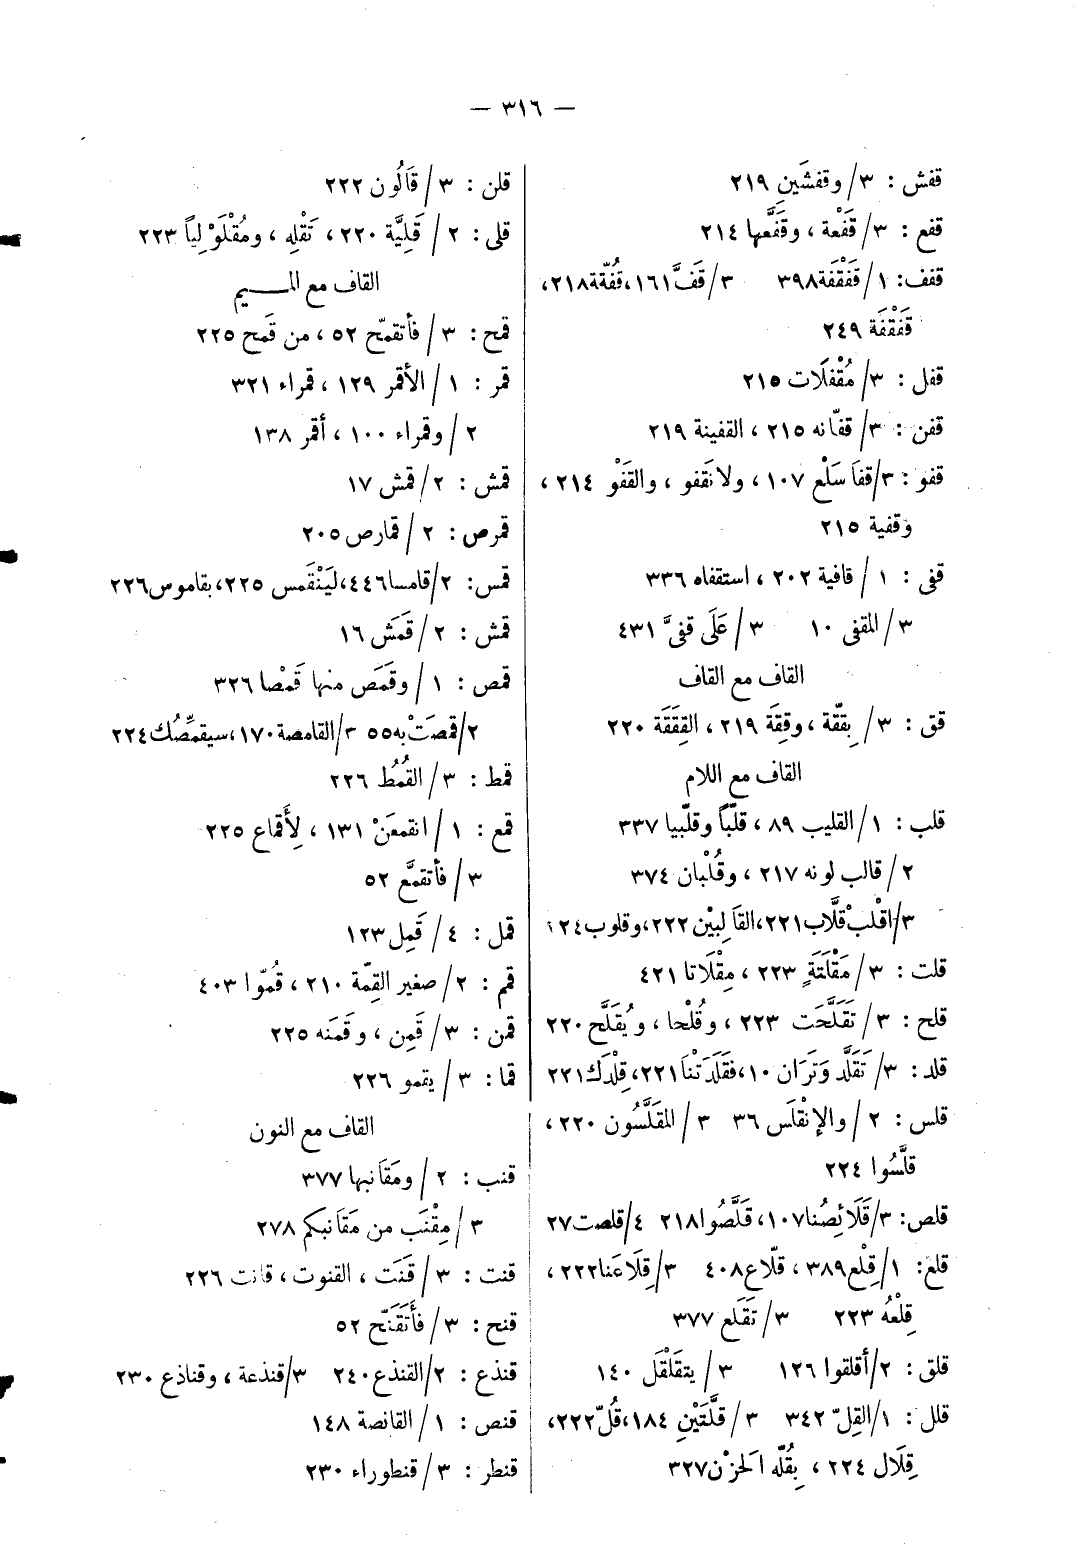 — ٣١٦ —
قفش : ٣/ وقفشَين ٢١٩
قفع : ٣/ قَفْعة ، وقَفَّعها ٢١٤
قفف: ١/ قَفْقَفَة٣٩٨ ٣/ قَفَّ١٦١،قُفّة٢١٨،
قَفْقَفَة ٢٤٩
قفل : ٣/ مُقْفَلَات ٢١٥
قفن : ٣/ قفّانه ٢١٥ ، القفينة ٢١٩
قفو : ٣/قفَا سَلْع ١٠٧ ، ولانَقفو ، والقَفْو ٢١٤ ،
وَقفية ٢١٥
قفى : ١ / قافية ٢٠٢ ، استقفاه ٣٣٦
٣/ المقفى ١٠ ٣/ عَلَى قفىَّ ٤٣١
القاف مع القاف
قق : ٣/ بِقَقّة ، وقِقَة ٢١٩ ، القِقَقَة ٢٢٠
القاف مع اللام
قلب : ١/ القليب ٨٩ ، قلّباً وقلّبيا ٣٣٧
٢/ قالب لونه ٢١٧ ، وقُلْبان ٣٧٤
٣/اقْلبْ قَلَّاب٢٢١،القَالِبيْن ٢٢٢،وقلوب
قلت : ٣/ مَقْلَتَةٍ ٢٢٣ ، مِقْلَاتا ٤٢١
قلح : ٣/ تَقَلَّحَت ٢٢٣ ، وقُلْحا ، ويُقَلَّح ٢٢٠
قلد : ٣/ تَقَلَّد وَتَرَان ١٠،فقَلَدَتْنَا ٢٢١،قِلْدَك٢٢١
قلس : ٢/ والإنْقلَس ٣٦ ٣/ المقَلَّسُون ٢٢٠ ،
قلَّسُوا ٢٢٤
قلص: ٣/قَلَائِصُنا١٠٧، قَلَّصُوا٢١٨ ٤/قلصت٢٧
قلع: ١/قِلْع٣٨٩ ، قلّاع٤٠٨ ٣/قِلَاعَنا٢٢٢ ،
قِلْعُه ٢٢٣ ٣/ تَقَلع ٣٧٧
قلق : ٢/أقلقوا ١٢٦ ٣/ يتقَلْقَل ١٤٠
قلل : ١/القِلّ ٣٤٢ ٣/ قلَّتَيْنِ ١٨٤،قُلّ٢٢٢،
قِلَال ٢٢٤ ، بِقُلّه الَحزْن٣٢٧
قلن : ٣/ قَالُون ٢٢٢
قلى : ٢/ قَلِيَّة ٢٢٠ ، تَقْلِه ، ومُقْلَوْلياً ٢٢٣
القاف مع المـــيم
قمح : ٣/ فأتقمّح ٥٢ ، من قَمح ٢٢٥
قمر : ١ / الأقمر ١٢٩ ، قمراء ٣٢١
٢ / وقمراء ١٠٠ ، أقمر ١٣٨
قمش : ٢/ قمش ١٧
قمرص : ٢ / قمارص ٢٠٥
قمس: ٢/قامسا٤٤٦،ليَنْقَمس ٢٢٥، بقاموس٢٢٦
قمش : ٢/ قَمَش ١٦
قمص : ١ / وقَمَص منها قَمْصا ٣٢٦
٢/قمصَتْ به٥٥ ٣/القامصة١٧٠،سيقمِّصُك٢٢٤
قمط : ٣/ القُمُط ٢٢٦
قمع : ١ / انقمعَنْ ١٣١ ، لِأَقماع ٢٢٥
٣ / فأتقمَّع ٥٢
قمل : ٤ / قَمِل ١٢٣
قمم : ٢/ صغير القِمّة ٢١٠ ، قُمّوا ٤٠٣
قمن : ٣/ قَمِن ، وقَمَنه ٢٢٥
قما : ٣ / يقمو ٢٢٦
القاف مع النون
قنب : ٢ / ومَقَانبها ٣٧٧
٣ / مِقْنَب من مَقَانبكم ٢٧٨
قنت : ٣ / قَنَت ، القنوت ، قانت ٢٢٦
قنح : ٣ / فأَتَقَنّح ٥٢
قنذع : ٢/ القنذع٢٤٠ ٣/قنذعة ، وقناذع ٢٣٠
قنص : ١ / القانصة ١٤٨
قنطر : ٣ / قنطوراء ٢٣٠